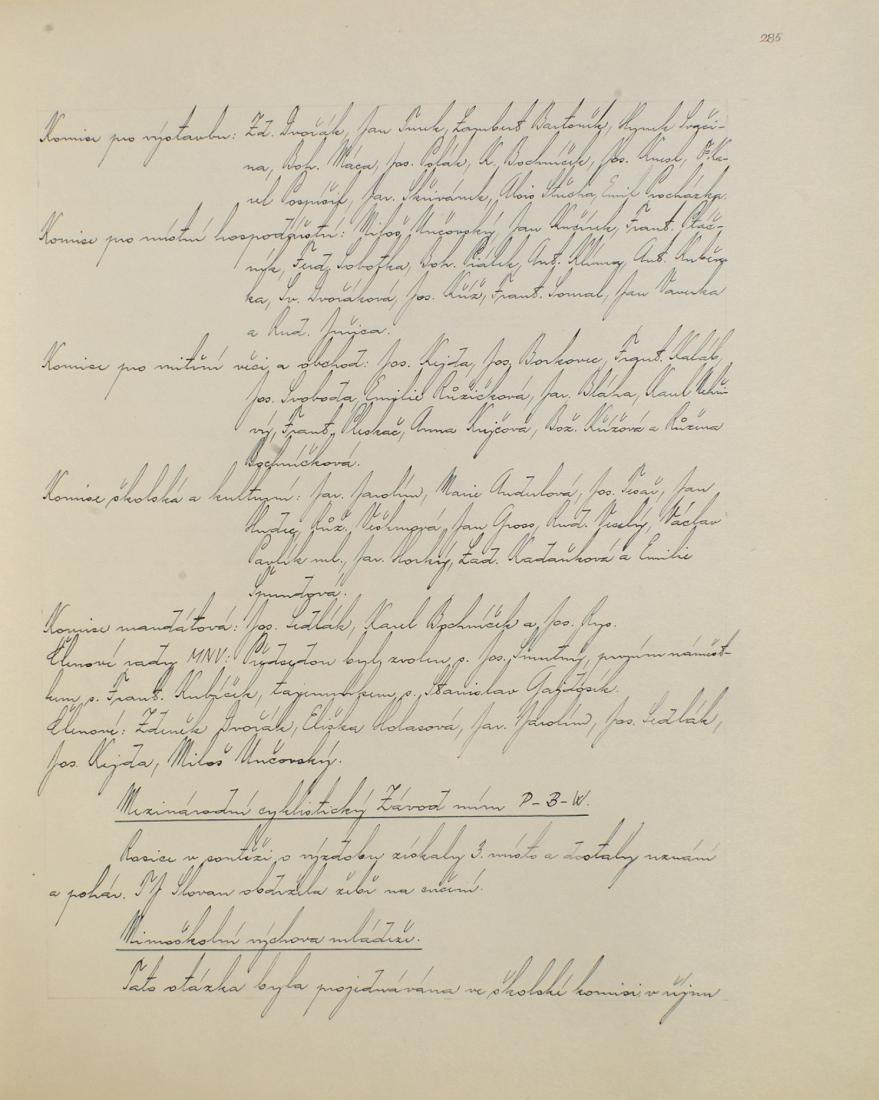 285
Komise pro výstavbu: Zd. Dvořák, Jan Turek, Lambert Bartoněk, Hynek
na, Boh. Máca, Jos. Polák, K. Bochníček, Jos.
rel Pospíšil, Jar. Skřivánek, Alois Stücha, Emil Procházka.
Komise pro místní hospodářství: Miloš Unčovský, Jan Kučírek, Frant. Ptáč-
ník, Ferd. Sobotka, Boh. Fiálek, Ant. Klíma, Ant.
ka, Sv. Dvořáková, Jos. Kříž, Frant. Jan Vaverka
a Rud. Jušica.
Komise pro vnitřní věci a obchod: Jos. Kejda, Jos. Borkovec, Frant. Kaláb,
Jos. Svoboda, Emilie Růžičková, Jar. Bláha, Karel
vý, Frant. Pleskač, Anna Krejčová, Bož. Křížová a Růžena
Bochníčková.
Komise školská a kulturní: Jar. Jarolím, Marie Andrlová, Jos. Tesař, Jan
Hudec, Růž. Jan Gross, Rud. Veselý, Václav
Pavlík ml., Jar. Horký, Lad. Kadaňková a Emilie
Špundová.
Komise mandátová: Jos. Sedlák, Karel Bochníček a Jos. Rys.
Členové rady MNV: Předsedou byl zvolen s. Jos. Smutný, prvním náměst-
kem s. Frant. Kubíček, tajemníkem s. Stanislav Gajdošík.
Členové: Zdeněk Dvořák, Eliška Holasová, Jar. Jarolím, Jos. Sedlák,
Jos. Kejda, Miloš Unčovský.
Mezinárodní cyklistický Závod míru P-B-W.
Rosice v soutěži o výzdobu získaly 3. místo a dostaly uznání
a pohár. TJ Slovan obdržela žebř na cvičení.
Mimoškolní výchova mládeže.
Tato otázka byla projednávána ve školské komisi v říjnu